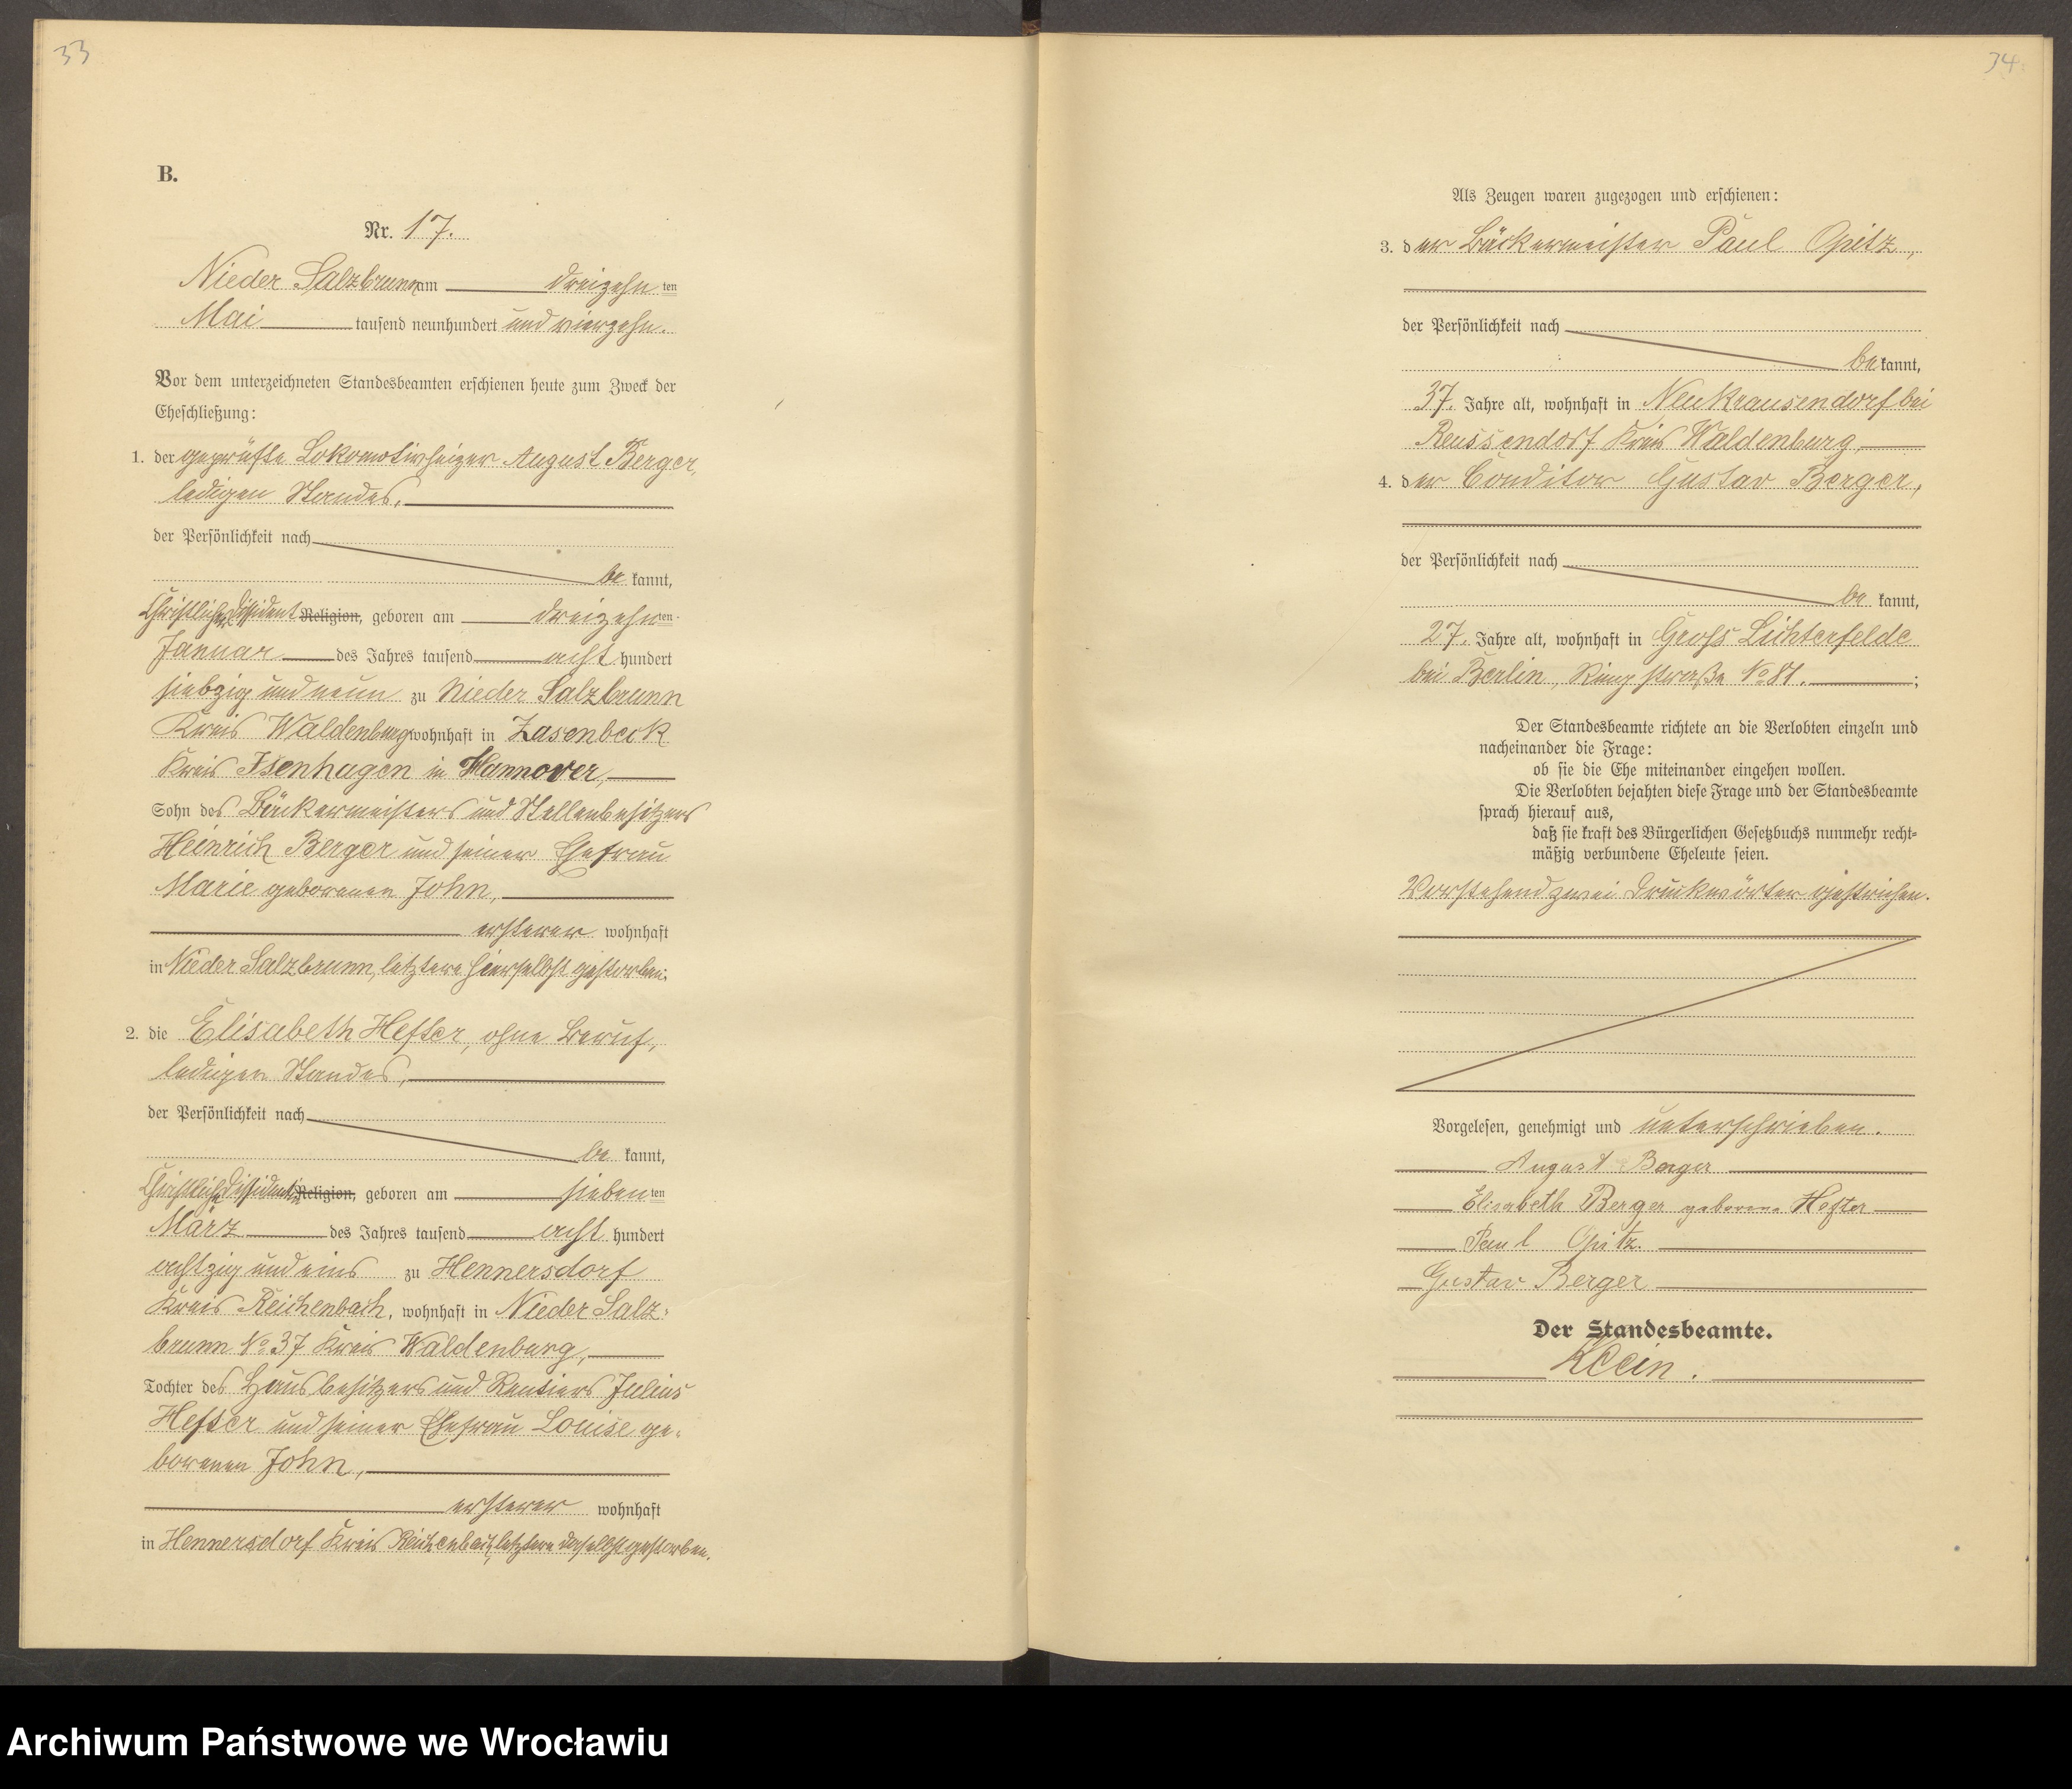 33
B.
Nr. 17.
Nieder Salzbrunn am dreizehn ten
Mai tausend neunhundert und vierzehn.
Vor dem unterzeichneten Standesbeamten erschienen heute zum Zweck der
Eheschließung:
1. der geprüfte Lokomotivheizer August Berger,
ledigen Standes,
der Persönlichkeit nach
be kannt,
Christlicher Dissident Religion, geboren am dreizehn ten
Januar des Jahres tausend acht hundert
siebzig und neun zu Nieder Salzbrunn
Kreis Waldenburg wohnhaft in Zasenbeck
Kreis Isenhagen in Hannover,
Sohn des Bäckermeisters und Stellenbesitzers
Heinrich Berger und seiner Ehefrau
Marie geborenen John,
ersterer wohnhaft
in Nieder Salzbrunn, letztere hierselbst gestorben;
2. die Elisabeth Hefter, ohne Beruf,
ledigen Standes,
der Persönlichkeit nach
be kannt,
Christliche Dissidentin Religion, geboren am sieben ten
März des Jahres tausend acht hundert
achtzig und eins zu Hennersdorf
Kreis Reichenbach, wohnhaft in Nieder Salz-
brunn No 37 Kreis Waldenburg,
Tochter des Hausbesitzers und Rentiers Julius
Hefter und seiner Ehefrau Louise ge-
borenen John,
ersterer wohnhaft
in Hennersdorf Kreis Reichenbach, letztere daselbst gestorben.
34.
Als Zeugen waren zugezogen und erschienen:
3. der Bäckermeister Paul Opitz,
der Persönlichkeit nach
be kannt,
37. Jahre alt, wohnhaft in Neukrausendorf bei
Reussendorf Kreis Waldenburg,
4. der Conditor Gustav Berger,
der Persönlichkeit nach
be kannt,
27. Jahre alt, wohnhaft in Gross Lichterfelde
bei Berlin, Ringstraße No 81. ;
Der Standesbeamte richtete an die Verlobten einzeln und
nacheinander die Frage:
ob sie die Ehe miteinander eingehen wollen.
Die Verlobten bejahten diese Frage und der Standesbeamte
sprach hierauf aus,
daß sie kraft des Bürgerlichen Gesetzbuchs nunmehr recht-
mäßig verbundene Eheleute seien.
Vorstehend zwei Druckwörter gestrichen.
Vorgelesen, genehmigt und unterschrieben.
August Berger
Elisabeth Berger geborene Hefter
Paul Opitz.
Gustav Berger
Der Standesbeamte.
Klein.
Archiwum Państwowe we Wrocławiu